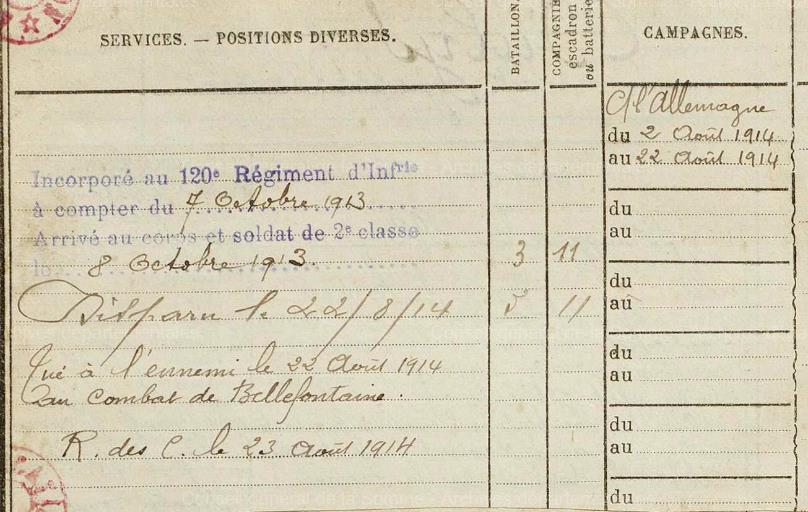 SERVICES. — POSITIONS DIVERSES.
BATAILLON.
COMPAGNIE
escadron
ou batterie
CAMPAGNES.
C/ l'Allemagne
du 2 Août 1914
au 22 Août 1914
Incorporé au 120e Régiment d'Infrie
à compter du 7 Octobre 1913
Arrivé au corps et soldat de 2e classe
le 8 Octobre 1913. 3 11
Disparu le 22/8/14 11
Tué à l'ennemi le 22 Août 1914
au combat de Bellefontaine.
R. des C. le 23 Août 1914
du
au
du
au
du
au
du
au
du